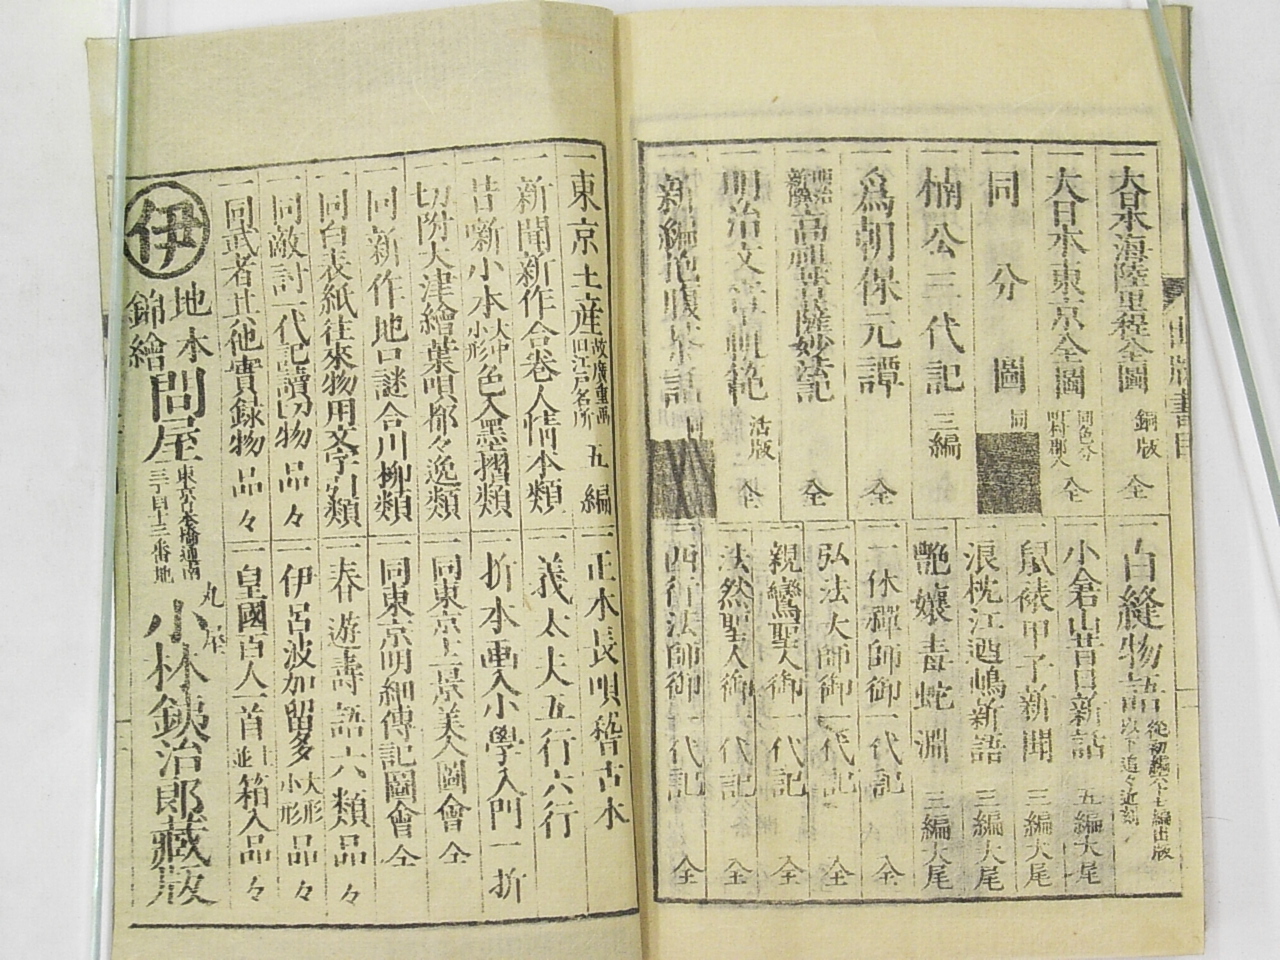 一大日本海陸里程全圖 銅版 全
一大日本東京全圖 同色分 町村郡入 全
同分圖 同
一楠公三代記 三編
一爲朝保元譚 全
高祖菩薩妙法記 全
一明治文章軌範 活版 全
一新編他腹茶話 同
一白縫物語 從初編六十七編出版 以下追々近刻
一小倉山昔日新話 五編大尾
一鼠裱甲子新聞 三編大尾
一浪枕江嶋新語 三編大尾
一艶孃毒蛇淵 三編大尾
一一休禪師御一代記 全
一弘法大師御一代記 全
一親鸞聖人御一代記 全
一法然聖人御一代記 全
一西行法師御一代記 全
一東京土産 故廣重画 旧江戸名所 五編
一新聞新作合卷人情本類
一昔噺小本 大中小形 色入墨摺類
一切附大津繪葉唄都々逸類
一同新作地口謎合川柳類
一同白表紙往來物用文字引類
一同敵討一代記讀切物品々
一同武者其他實録物品々
一正本長唄稽古本
一義太夫五行六行
一折本画入小學入門一折
一同東京十二景美人圖會 全
一同東京明細傳記圖會 全
一春遊壽語六類品々
一伊呂波加留多 大形小形 品々
一皇國百人一首 並箱入品々
伊
地本錦繪問屋
東京日本橋通南三丁目十三番地
丸屋
小林銕治郎藏版